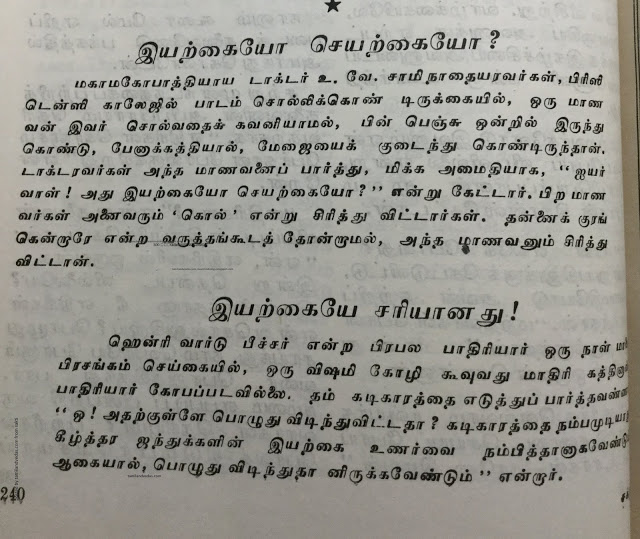 ★
இயற்கையோ செயற்கையோ?
மகாமகோபாத்தியாய டாக்டர் உ. வே. சாமிநாதையரவர்கள், பிரஸி
டென்ஸி காலேஜில் பாடம் சொல்லிக்கொண் டிருக்கையில், ஒரு மாண
வன் இவர் சொல்வதைக் கவனியாமல், பின் பெஞ்சு ஒன்றில் இருந்து
கொண்டு, பேனாக்கத்தியால், மேஜையைக் குடைந்து கொண்டிருந்தான்.
டாக்டரவர்கள் அந்த மாணவனைப் பார்த்து, மிக்க அமைதியாக, “ ஐயர்
வாள் ! அது இயற்கையோ செயற்கையோ ? ” என்று கேட்டார். பிற மாண
வர்கள் அனைவரும் ‘ கொல் ’ என்று சிரித்து விட்டார்கள். தன்னைக் குரங்
கென்றாரே என்ற வருத்தங்கூடத் தோன்றாமல், அந்த மாணவனும் சிரித்து
விட்டான்.
இயற்கையே சரியானது !
ஹென்ரி வார்டு பீச்சர் என்ற பிரபல பாதிரியார் ஒரு நாள்
பிரசங்கம் செய்கையில், ஒரு விஷமி கோழி கூவுவது மாதிரி
பாதிரியார் கோபப்படவில்லை. தம் கடிகாரத்தை எடுத்துப்
“ ஓ ! அதற்குள்ளே பொழுது விடிந்துவிட்டதா ? கடிகாரத்தை
கீழ்த்தர ஜந்துக்களின் இயற்கை உணர்வை
ஆகையால், பொழுது விடிந்துதா னிருக்கவேண்டும் ” என்றார்.
240